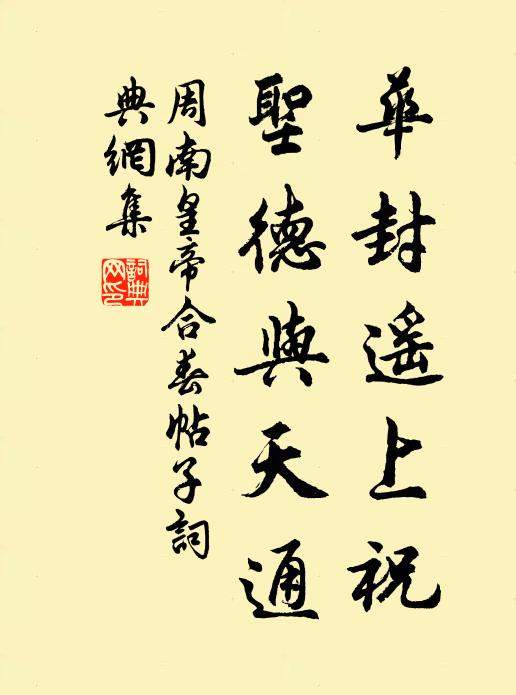 華封遥上祝
聖德與天通
周南皇帝合春帖子詞
典網集
詞典网印